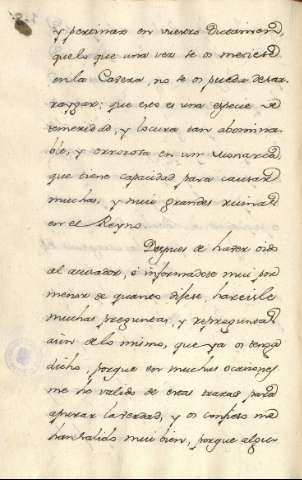 y persistais en vuestro Dictamen,
que lo que una vez se os metiere
en la Cavera, no se os pueda desar
raygar; que esto es una especie de
temeridad, y locura tan abomina-
ble, y orrorosa en un Monarca,
que tiene capacidad para causar
muchas, y mui grandes ruinas
en el Reyno.
Despues de haver oido
al acusador, é informadose mui por
menor de quanto dijese, hareisle
muchas preguntas, y repreguntas
aun de lo mismo, que ya os tenga
dicho, porque en muchas ocasiones
me he valido de estas trazas para
apurar la verdad, y os confieso me
han salido mui bien, porque algu-